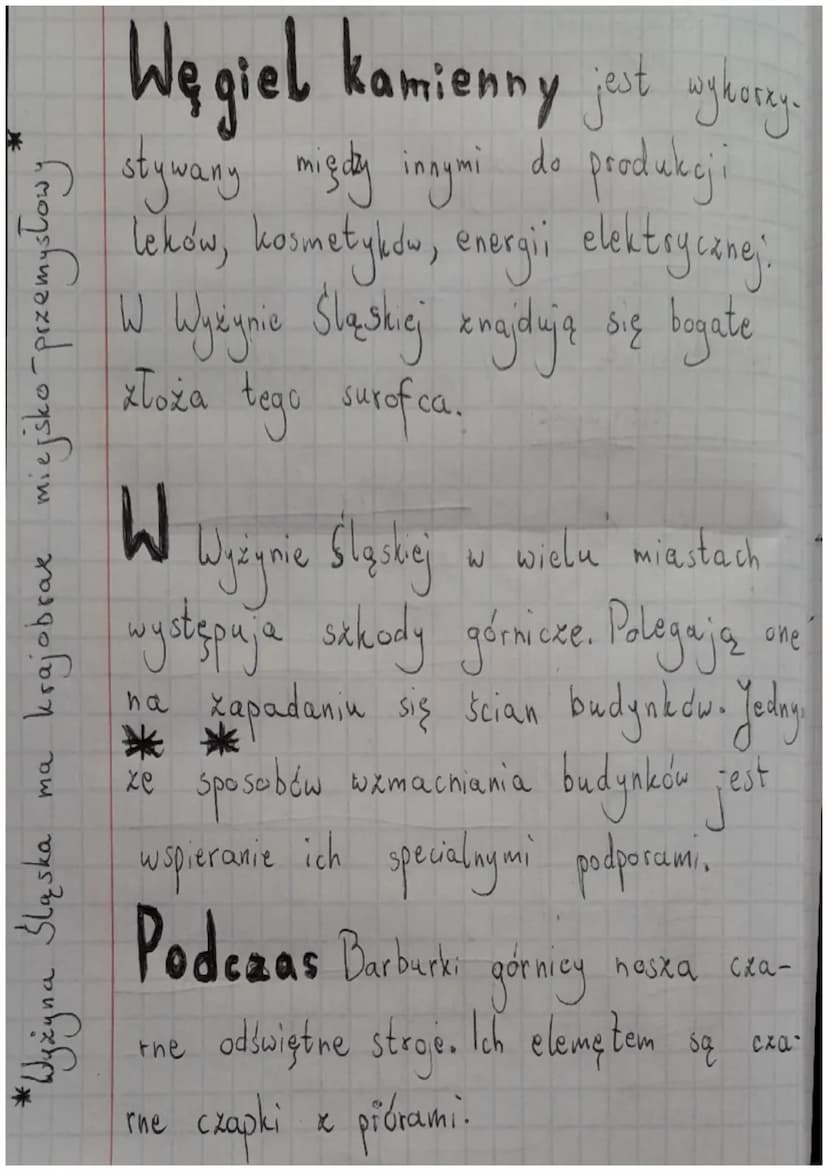 Węgiel kamienny jest wykorzy-
stywany między innymi do produkcji
leków, kosmetyków, energii elektrycznej.
W Wyżynie Śląskiej znajdują się bogate
złoża tego surofca.
W Wyżynie Śląskiej w wielu miastach
występują szkody górnicze. Polegają one
na zapadaniu się ścian budynków. Jedny
* *
ze sposobów wzmacniania budynków jest
wspieranie ich specialnymi podporami.
Podczas Barburki górnicy noszą cza-
rne odświętne stroje. Ich elemętem są cza-
rne czapki z piórami.
*Wyżyna Śląska ma krajobraz miejsko-przemysłowy*